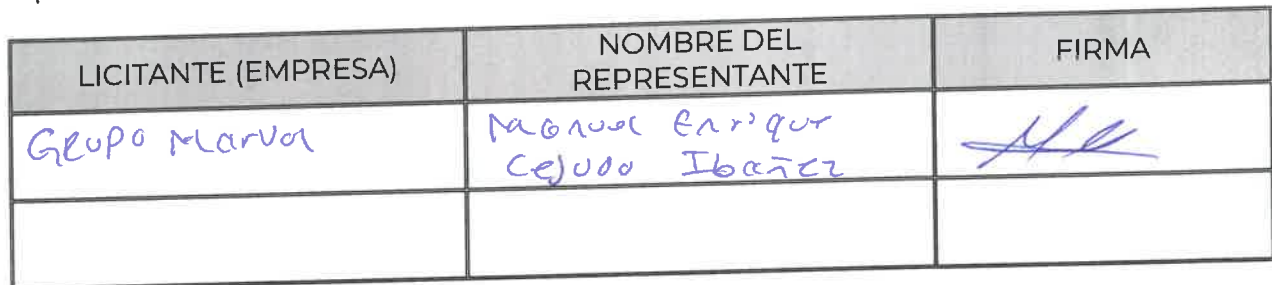 LICITANTE (EMPRESA)
NOMBRE DEL
REPRESENTANTE
FIRMA
Grupo Marvol
Manuel Enrique
Cejudo Ibañez